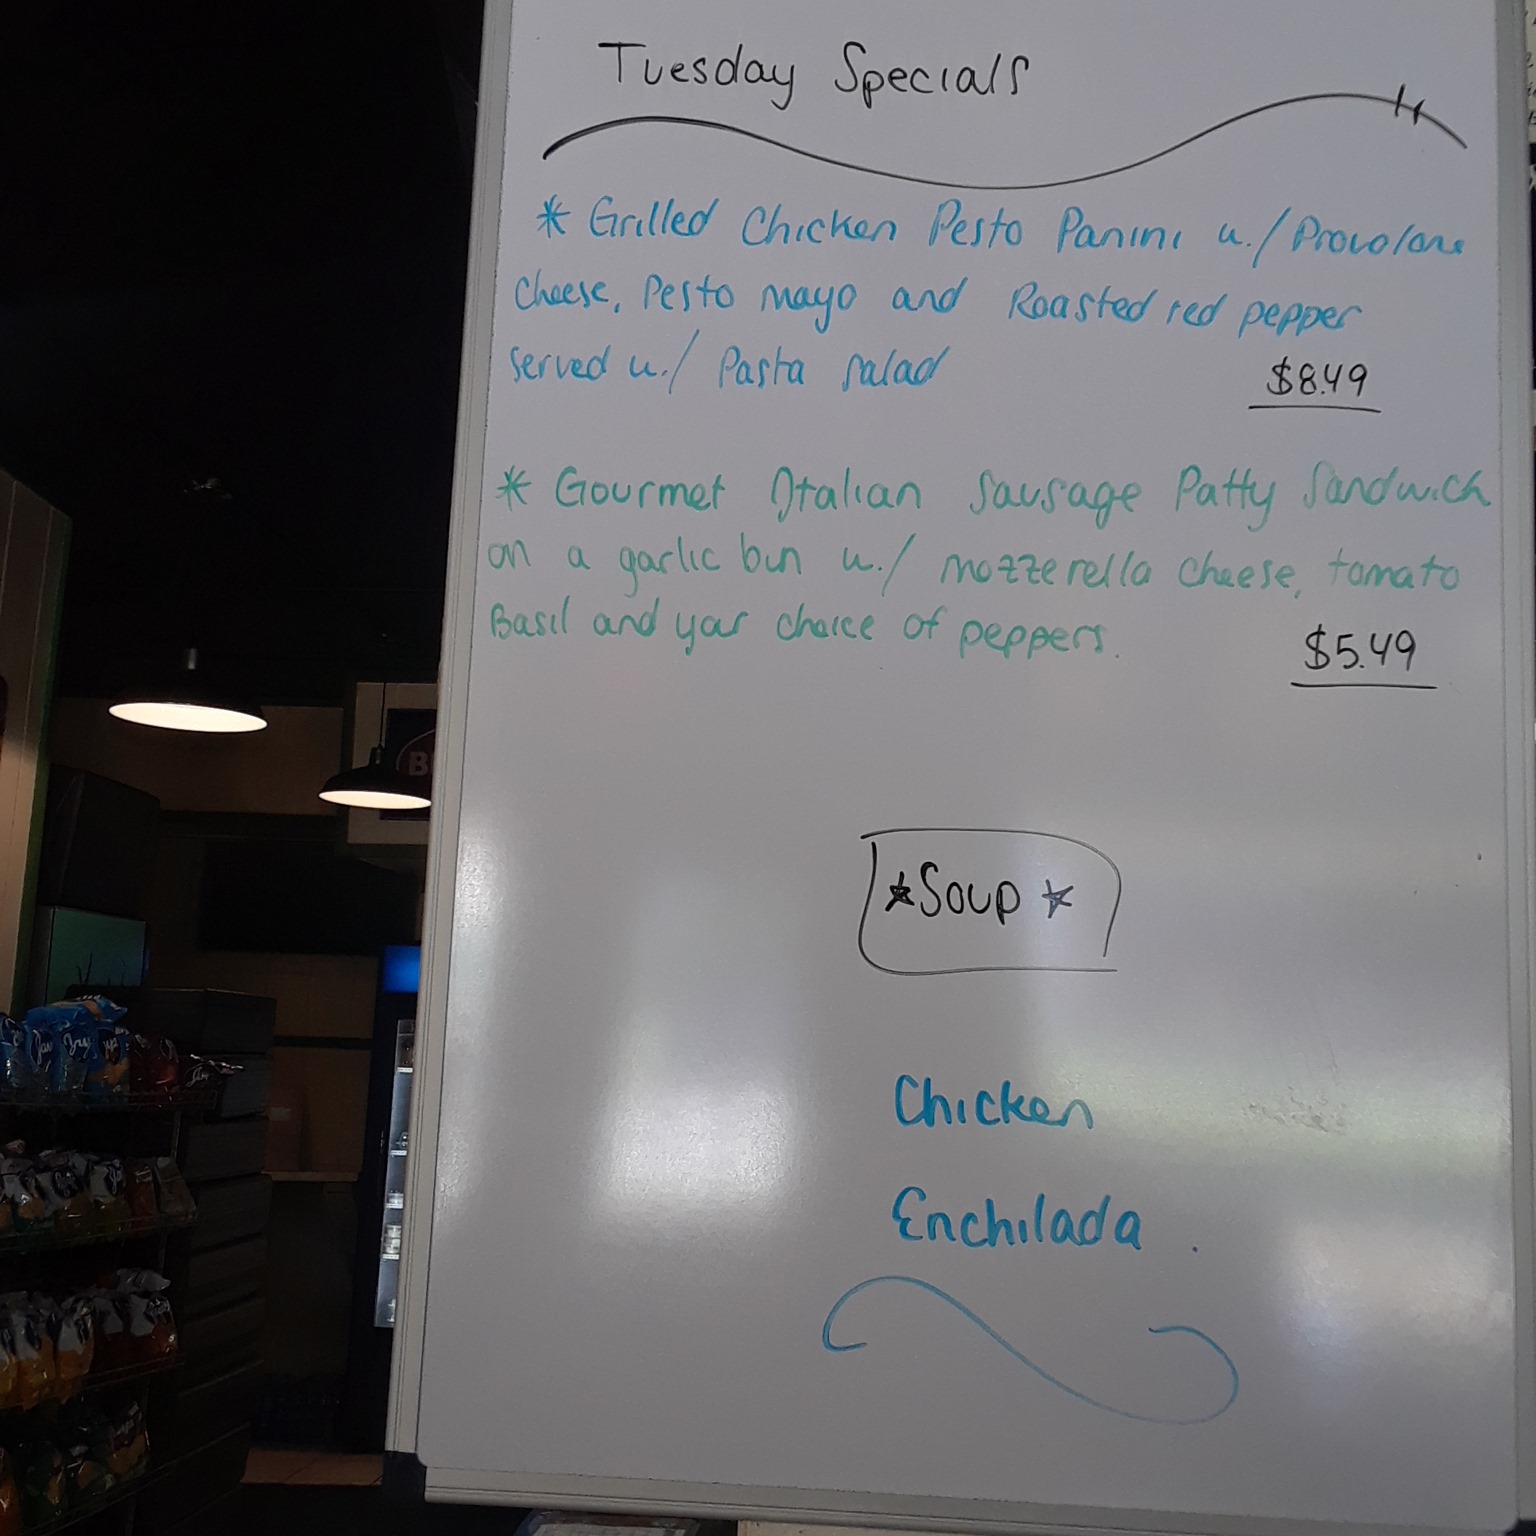 Tuesday Specials
* Grilled Chicken Pesto Panini w./ Provolone
cheese, Pesto mayo and Roasted red pepper
served w./ Pasta salad
$8.49
* Gourmet Italian Sausage Patty Sandwich
on a garlic bun w./ mozzerella cheese, tomato
Basil and your choice of peppers.
$5.49
★Soup★
Chicken
Enchilada